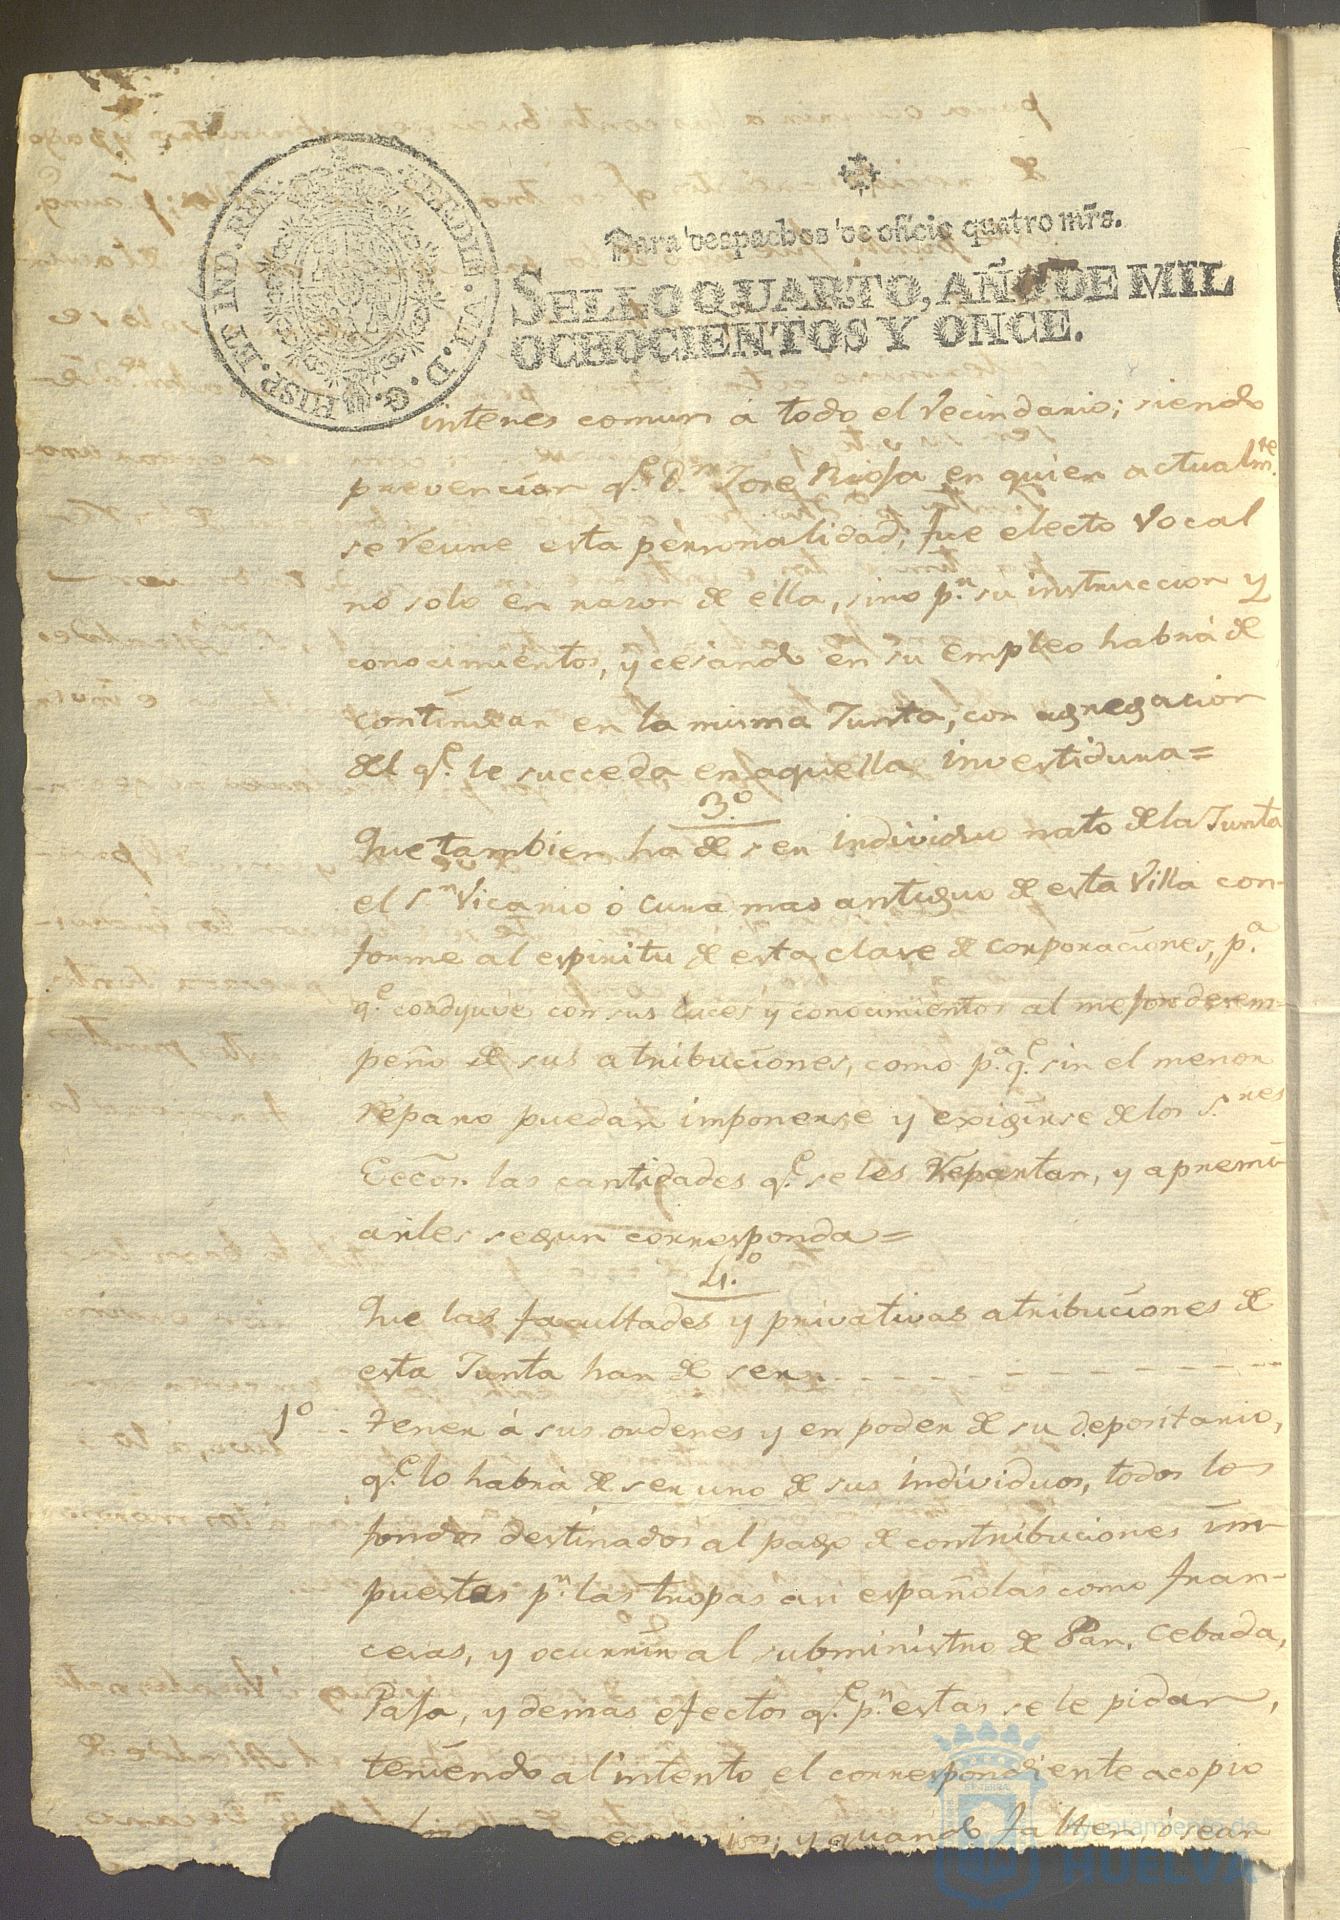 FERDIN. VII. D. G. HISP. ET IND. REX.
Para despachos de oficio quatro mrs.
SELLO QUARTO, AÑO DE MIL
OCHOCIENTOS Y ONCE.
interes comun á todo el Vecindario; siendo
prevencion q.e D.n José Rioja en quien actualm.te
se reune esta personalidad, fue electo Vocal
no solo en razon de ella, sino p.r su instruccion y
conocimientos, y cesando en su empleo habrá de
continuar en la misma Junta, con agregacion
del q.e le succeda en aquella investidura=
3.o
Que tambien ha de ser individuo nato de la Junta
el S.r Vicario ó cura mas antiguo de esta Villa con-
forme al espiritu de esta clase de corporaciones, p.a
q.e coadyuve con sus luces y conocimientos al mejor desem-
peño de sus atribuciones, como p.a q.e sin el menor
reparo puedan imponerse y exigirse de los S.res
Eccos. las cantidades q.e se les repartan, y apremi-
arles segun corresponda=
4.o
Que las facultades y privativas atribuciones de
esta Junta han de ser
1o .. tener á sus ordenes y en poder de su depositario,
q.e lo habrá de ser uno de sus individuos, todos los
fondos destinados al pago de contribuciones im-
puestas p.r las tropas asi españolas como fran-
cesas, y ocurrir al subministro de Pan, Cebada,
Paja, y demas efectos q.e p.r estas se le pidan,
teniendo al intento el correspondiente acopio
y quando falten, ó sean
Ayuntamiento de
HUELVA